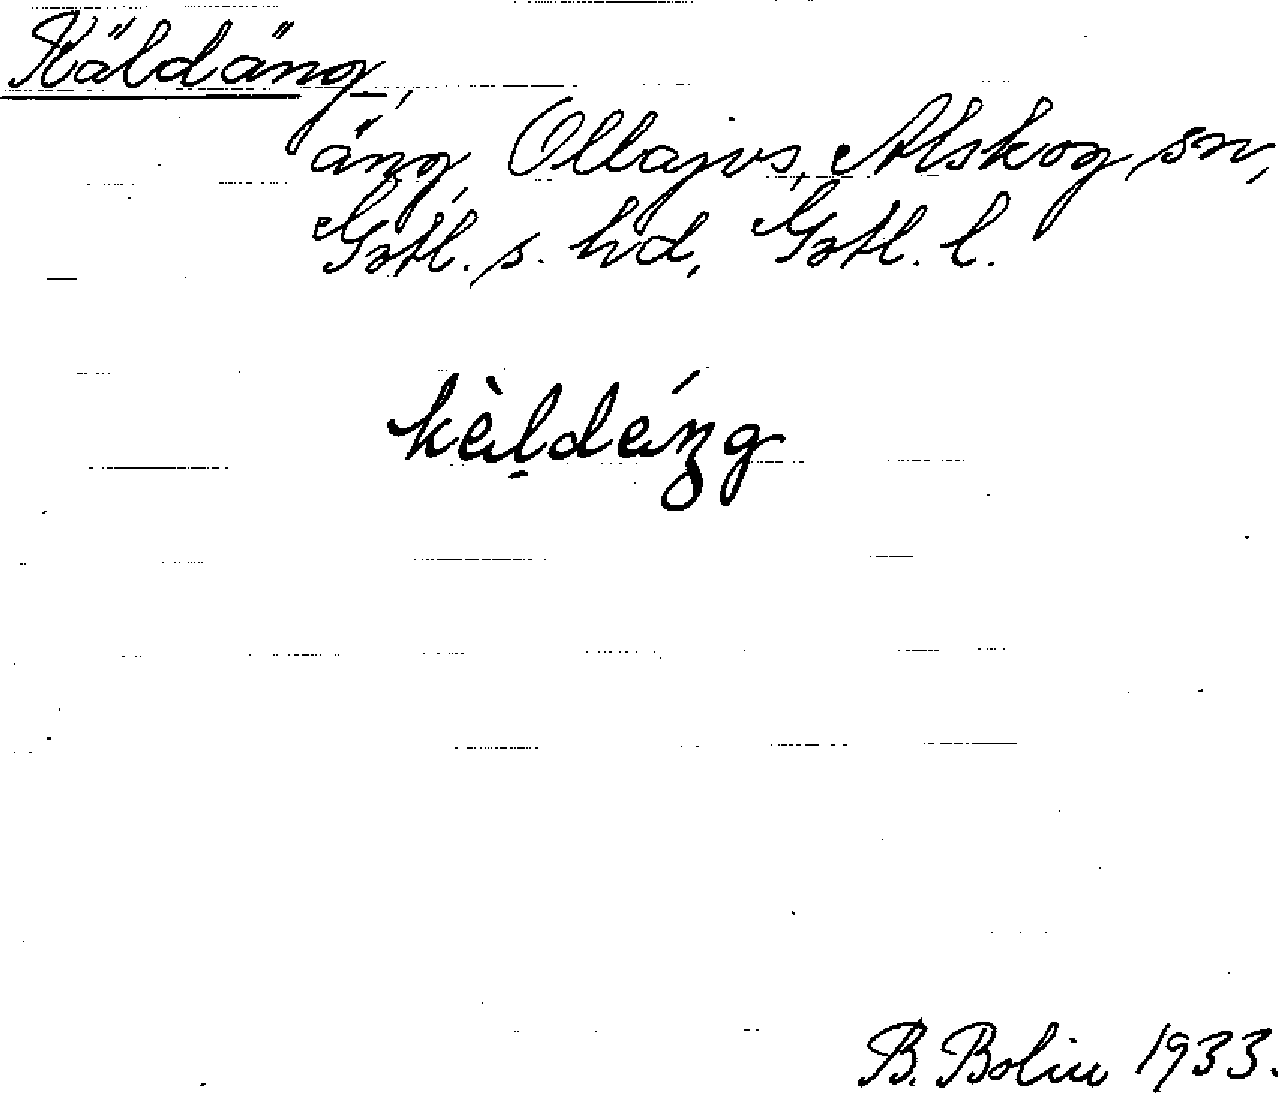 Käldäng,
äng, Ollajvs, Alskog sn,
Gotl. s. hd, Gotl. l.
kèl̠déŋg
B. Bolin 1933.